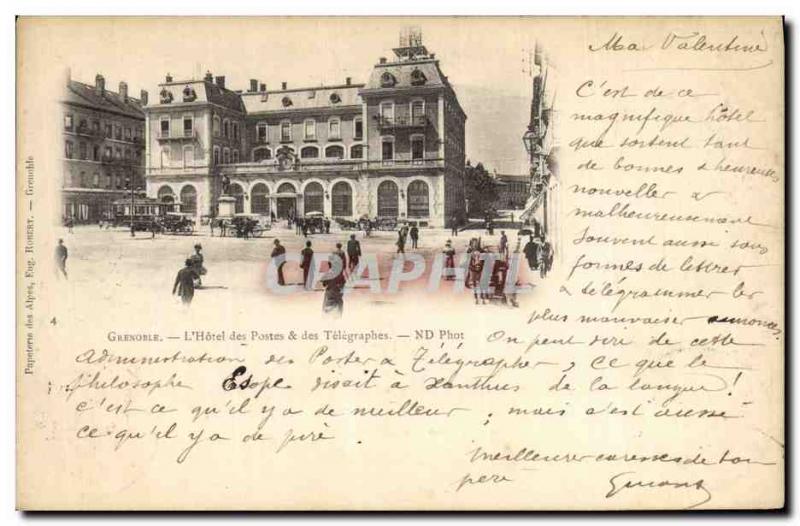 Ma Valentine
C'est de ce
magnifique hôtel
que sortent tant
de bonnes & heureuses
nouvelles &
malheureusement
souvent aussi sous
formes de lettres
& télégrammes les
plus mauvaises annonces.
On peut dire de cette
Administration des Postes & Télégraphes, ce que le
philosophe Esope disait à Xanthus de la langue!
c'est ce qu'il y a de meilleur, mais c'est aussi
ce qu'il y a de pire
Meilleures caresses de ton
père
CPARAMA
4
GRENOBLE. — L'Hôtel des Postes & des Télégraphes. — ND Phot
Papeterie des Alpes, Eug. ROBERT. — Grenoble